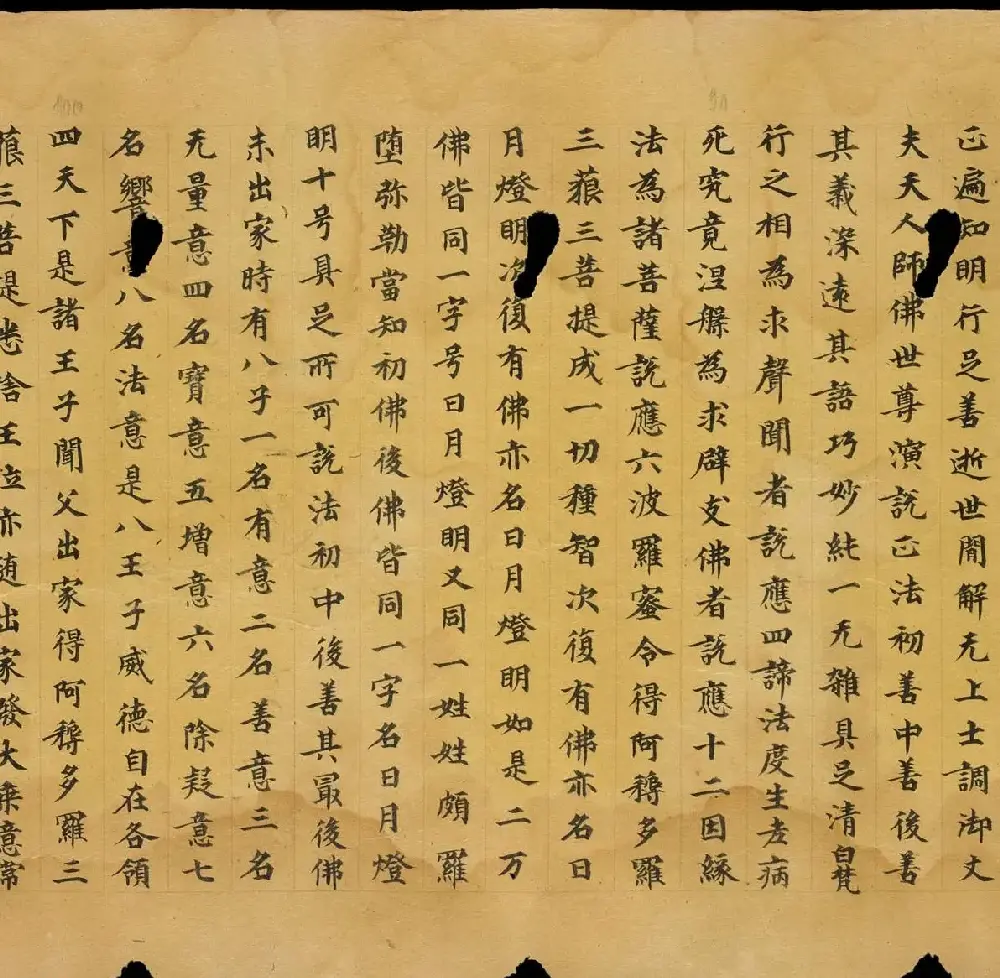 正遍知明行足善逝世間解无上士調御丈
夫天人師佛世尊演說正法初善中善後善
其義深遠其語巧妙純一无雜具足清白梵
行之相為求聲聞者說應四諦法度生老病
死究竟涅槃為求辟支佛者說應十二因緣
法為諸菩薩說應六波羅蜜令得阿耨多羅
三藐三菩提成一切種智次復有佛亦名日
月燈明次復有佛亦名日月燈明如是二万
佛皆同一字号日月燈明又同一姓姓頗羅
堕弥勒當知初佛後佛皆同一字名日月燈
明十号具足所可說法初中後善其冣後佛
未出家時有八子一名有意二名善意三名
无量意四名寶意五增意六名除疑意七
名響意八名法意是八王子威德自在各領
四天下是諸王子聞父出家得阿耨多羅三
藐三菩提悉捨王位亦随出家發大乗意常